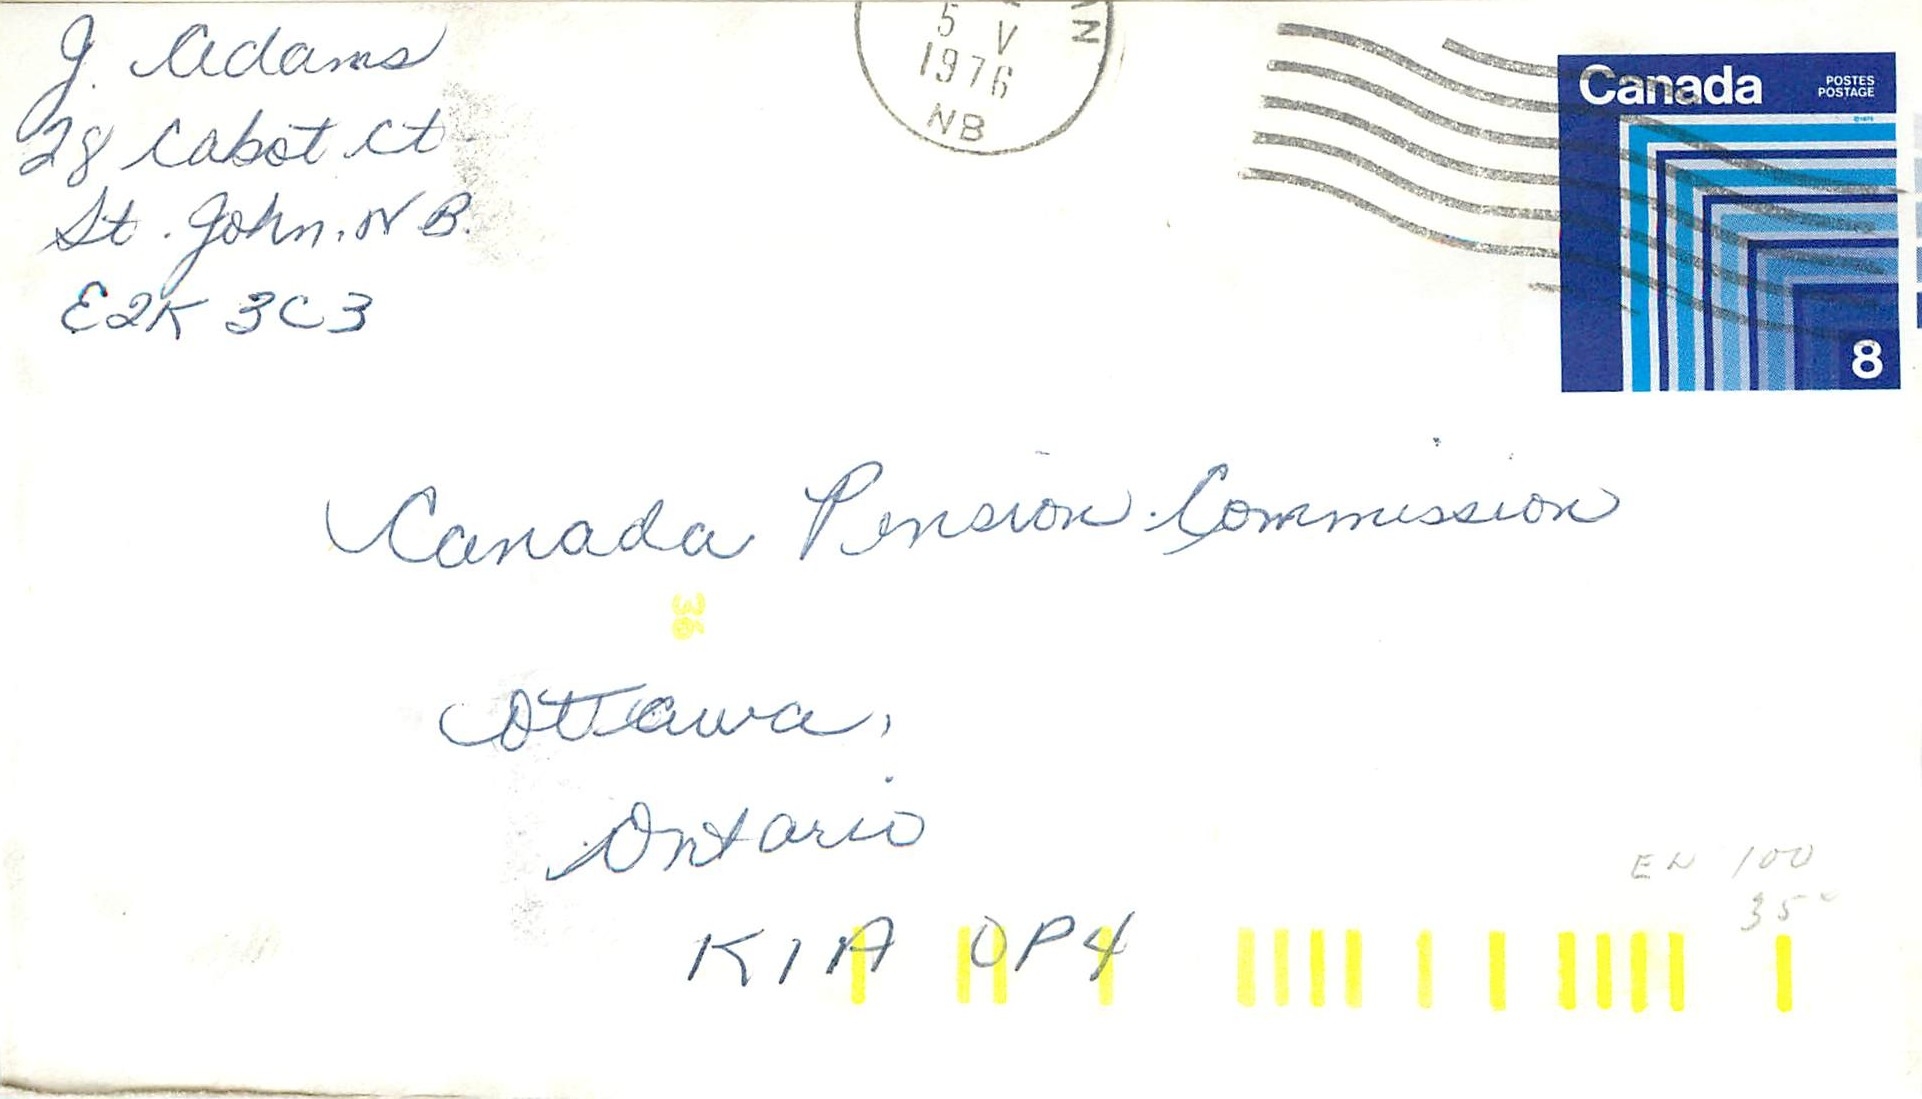 J. Adams
28 Cabot Ct
St. John, N B.
E2K 3C3
5 V
1976
NB
Canada
POSTES
POSTAGE
8
Canada Pension Commission
36
Ottawa,
Ontario
K1A 0P4
EN 100
35